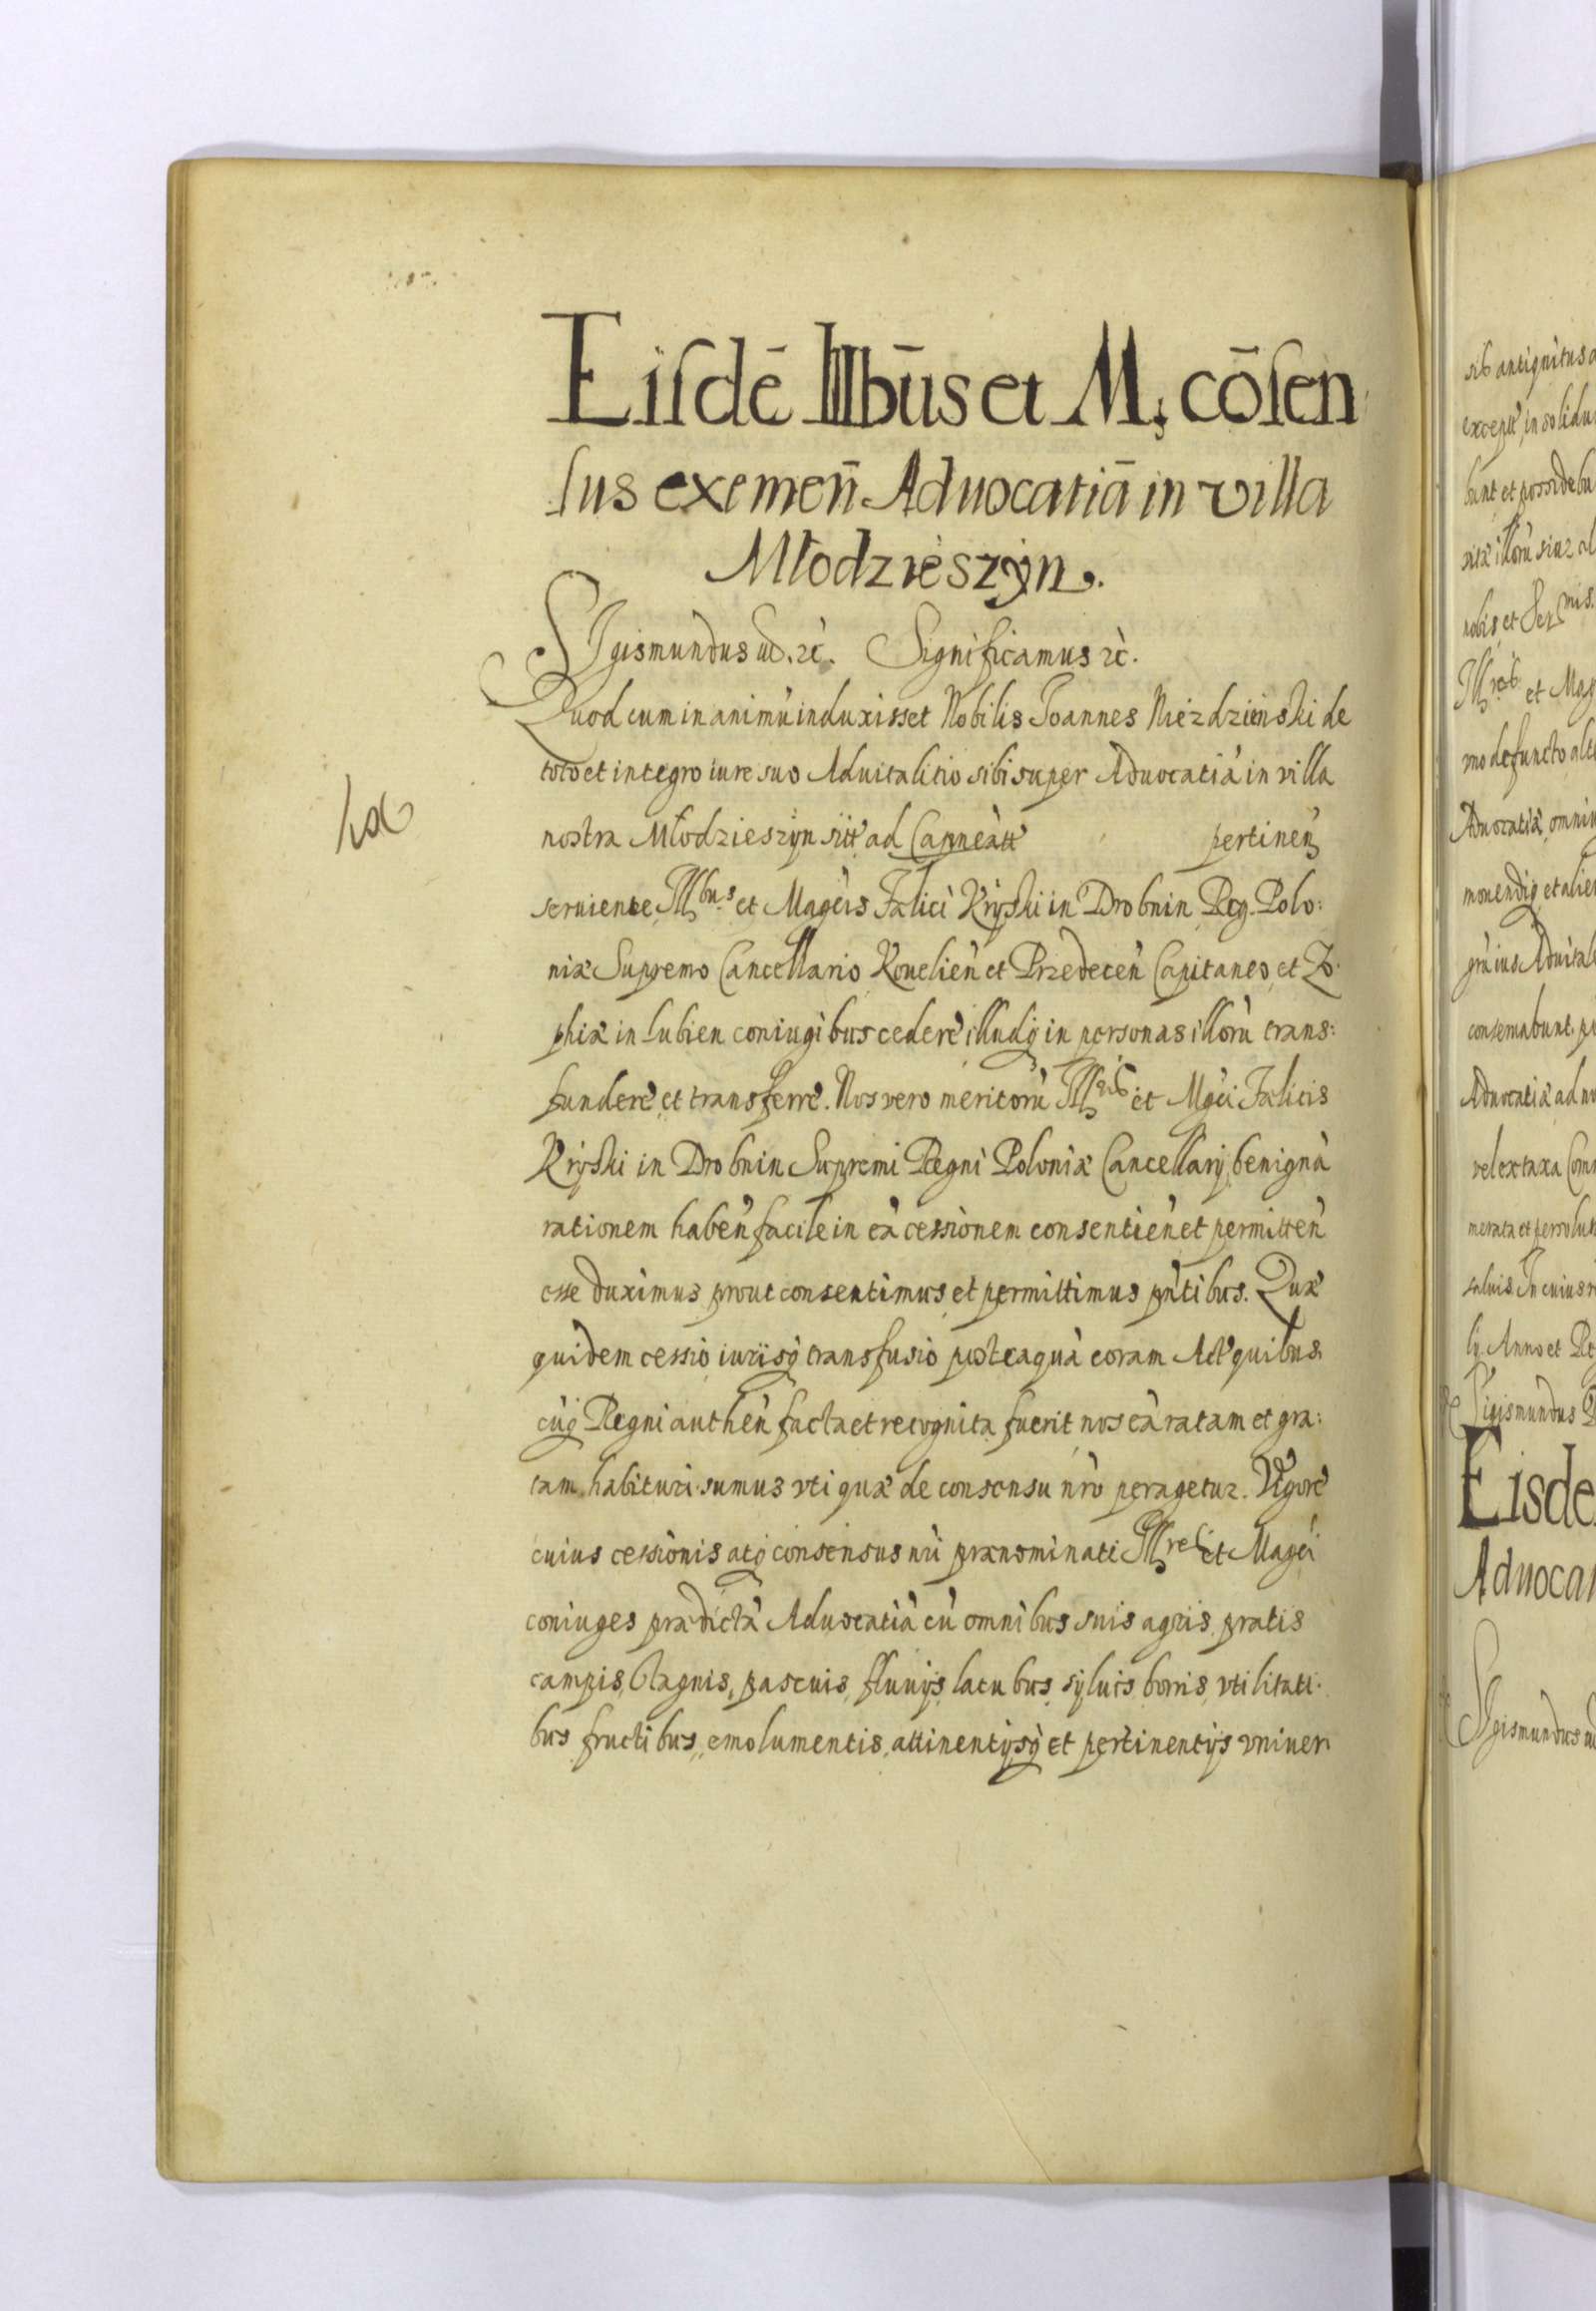 Eiſdē Illbūs et M. cōſen
ſus exemeñ Aduocatiā in villa
Młodzieszÿn.
SIgismundus ut. ꝛc̀. Significamus ꝛc̀.
Quod cum in animù induxisset Nobilis Joannes Niezdzienski de
toto et integro iure suo Aduitalitio sibi super Aduocatià in villa
nostra Młodzieszÿn sitt ad Capneàtt pertineñ
seruiente Ill^bus et Magcis Fælici Krÿski in Drobnin Reg. Polo:
niæ Supremo Cancellario Kouelien̄ et Przedecen̄ Capitaneo, et Zo.
phiæ in Lubien coniugibus cedere illudq̃ in personas illorù trans:
fundere et transferre. Nos vero meritorù Ill^ris et Mgci Fælicis
Krÿski in Drobnin Supremi Regni Poloniæ Cancellarij, benignà
rationem haben̄ facile in eà cessionem consentien̄ et permitten̄
esse duximus prout consentimus et permittimus pn̄tibus. Quæ
quidem cessio, iurisq̃ transfusio posteaquà coram Act. quibus
cùq̃ Regni authen̄ facta et recognita fuerit nos eà ratam et gra:
tam habituri sumus vti quæ de consensu nr̄o peragetur. Vigore
cuius cessionis atq̃ consensus nr̄i prænominati Ill^res et Magci
coniuges prædictà Aduocatià cù omnibus suis agris, pratis
campis, stagnis, pascuis, fluuÿs, lacubus, sÿluis, borris, vtilitati.
bus, fructibus, emolumentis, attinentÿsq̃ et pertinentÿs vniuer
sib antiquitus
in solidu
bunt et possidebu
nobis et Ser^mis.
Ill^res et Mag
mo defuncto alt
monendis, et alie
Aduocatiæ ad
vel ex taxa Com
saluis. In cuius
lÿ. Anno et Re
Sigismundus
Eisde
Aduoca
Sigismundus